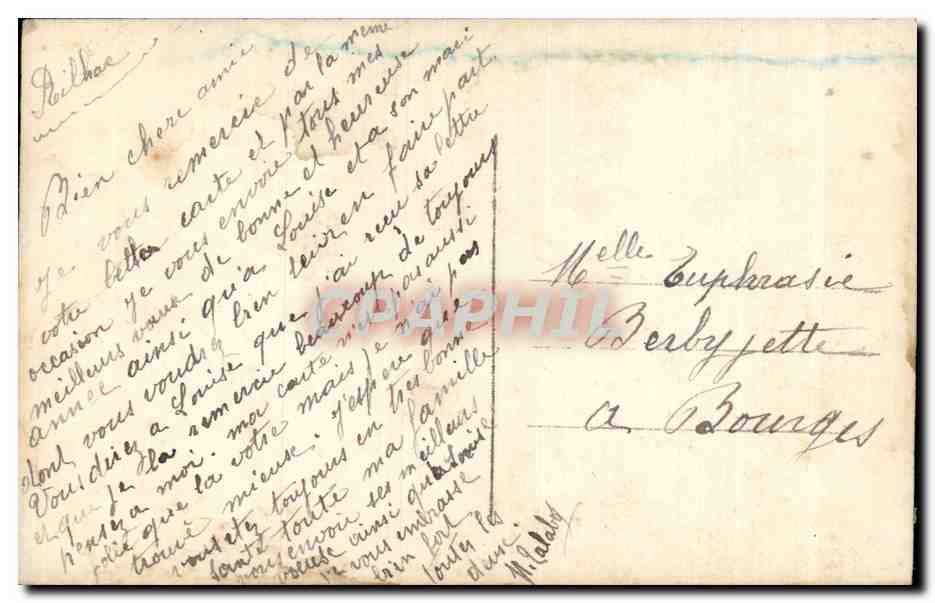 Rilhac
Bien chere amie
je vous remercie de
votre belle carte et par la meme
occasion je vous envoie tous mes
meilleurs voeux de bonne et heureuse
annee ainsi qu'a Louise et a son mari
dont vous voudrez bien leur en faire part
Vous direz a Louise que j'ai recu sa lettre
et que je la remercie beaucoup de toujours
pensez a moi. ma carte n'est pas aussi
jolie que la votre mais je n'ai pas
trouvé mieux. j'espere que
vous etez toujours en tres bonne
santé toute ma famille
vous envoie ses meilleurs
voeux ainsi qu'a Louise
je vous embrasse
bien fort
toutes les
deux
Melle Euphrasie
Berbyjette
a Bourges
CPAPHIL